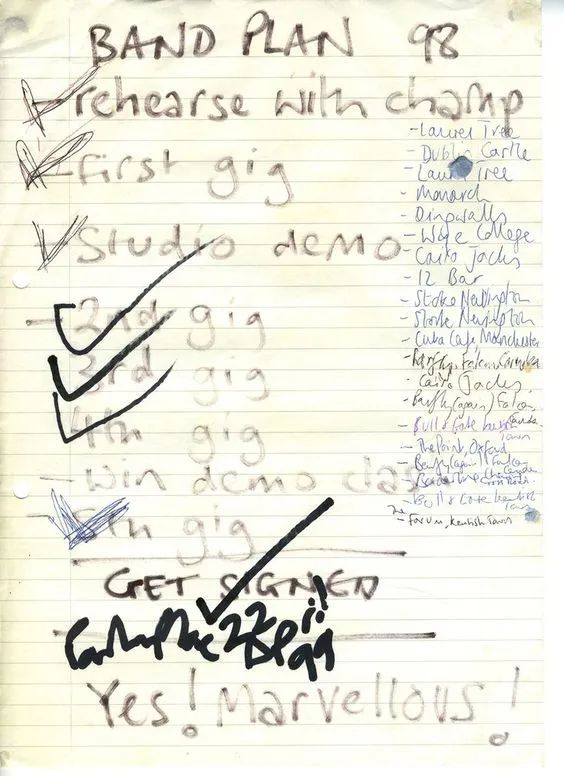 BAND PLAN 98
rehearse with champ
- First gig
Studio demo
- 2nd gig
3rd gig
4th gig
- win demo clash
- 5th gig
GET SIGNED
22 Sep 99 !!
Yes! Marvellous!
- Laurel Tree
- Dublin Castle
- Laurel Tree
- Monarch
- Dingwalls
- Wye College
- Cairo Jacks
- 12 Bar
- Stoke Newington
- Stoke Newington
- Cuba Cafe, Manchester
- Barfly, Falcon, Camden
- Cairo Jacks
- Barfly (again) Falcon
- Bull & Gate Kentish Town
- The Point, Oxford
- Barfly (again) Falcon Camden
- Borderline, Charing Cross Road
- Bull & Gate Kentish Town
- Forum, Kentish Town